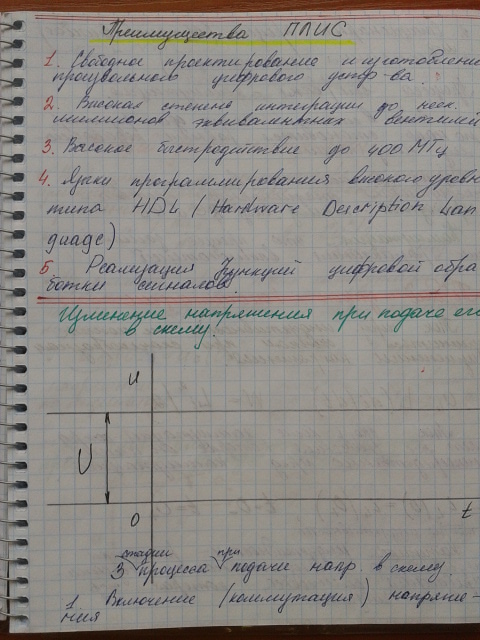 Преимущества ПЛИС
1. Свободное проектирование и изготовлени
произвольного цифрового устр-ва.
2. Высокая степень интеграции до неск.
миллионов эквивалентных вентилей
3. Высокое быстродействие до 400 МГц
4. Языки программирования высокого уровн
типа HDL (Hardware Description Lan
guage)
5 Реализация функций цифровой обра
ботки сигналов.
Изменение напряжения при подаче его
в схему.
U
U
0
t
стадии при
3 процесса подачи напр. в схему.
1. Включение (коммутация) напряже-
ния